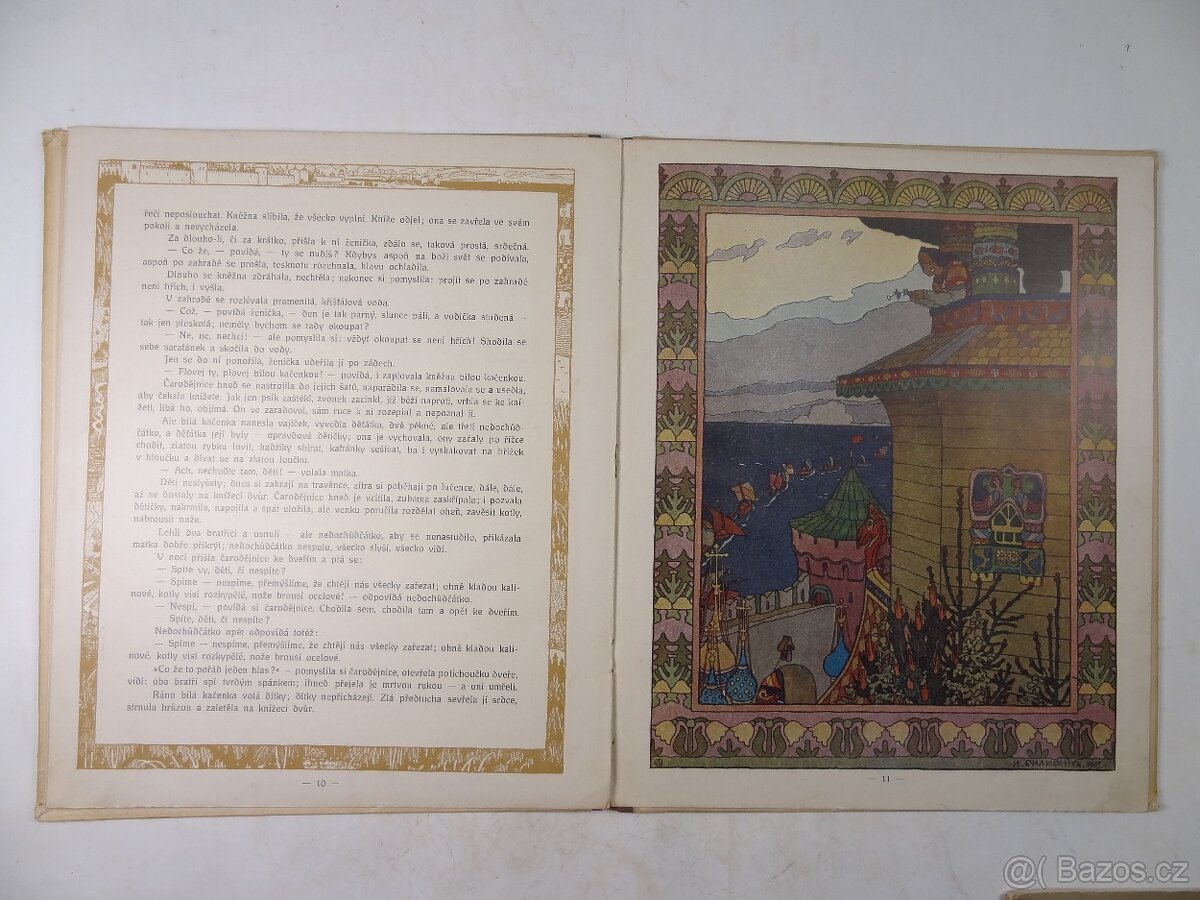 řeči neposlouchat. Kněžna slíbila, že všecko vyplní. Kníže odjel; ona se zavřela ve svém
pokoji a nevycházela.
Za dlouho-li, či za krátko, přišla k ní ženička, zdálo se, taková prostá, srdečná.
— Co že, — povídá, — ty se nudíš? Kdybys aspoň na boží svět se podívala,
aspoň po zahradě se prošla, tesknotu rozehnala, hlavu ochladila.
Dlouho se kněžna zdráhala, nechtěla; nakonec si pomyslila: projít se po zahradě
není hřích, i vyšla.
V zahradě se rozlévala pramenitá, křišťálová voda.
— Což, — povídá ženička, — den je tak parný, slunce pálí, a vodička studená —
tak jen pleskotá; neměly bychom se tady okoupat?
— Ne, ne, nechci! — ale pomyslila si: vždyť okoupat se není hřích! Shodila se
sebe sarafánek a skočila do vody.
Jen se do ní ponořila, ženička udeřila ji po zádech.
— Plovej ty, plovej bílou kačenkou! — povídá, i zaplovala kněžna bílou kačenkou.
Čarodějnice hned se nastrojila do jejích šatů, naparádila se, namalovala se a usedla,
aby čekala knížete. Jak jen psík zaštěkl, zvonek zacinkl, již běží naproti, vrhla se ke kní-
žeti, líbá ho, objímá. On se zaradoval, sám ruce k ní rozepial a nepoznal jí.
Ale bílá kačenka nanesla vajíček, vyvedla děťátka, dvě pěkné, ale třetí nedochůd-
čátko, a děťátka její byly — opravdové dětičky; ona je vychovala, ony začaly po říčce
chodit, zlatou rybku lovit, hadříky sbírat, kaftánky sešívat, ba i vyskakovat na břížek
v hloučku a dívat se na zlatou loučku.
— Ach, nechoďte tam, děti! — volala matka.
Děti neslyšely; dnes si zahrají na travěnce, zítra si poběhají po lučence, dále, dále,
až se dostaly na knížecí dvůr. Čarodějnice hned je ucítila, zubama zaskřípala; i pozvala
dětičky, nakrmila, napojila a spat uložila, ale venku poručila rozdělat oheň, zavěsit kotly,
nabrousit nože.
Lehli dva bratříci a usnuli — ale nedochůdčátko, aby se nenastudilo, přikázala
matka dobře přikrýt; nedochůdčátko nespalo, všecko slyší, všecko vidí.
V noci přišla čarodějnice ke dveřím a ptá se:
— Spíte vy, děti, či nespíte?
— Spíme — nespíme, přemýšlíme, že chtějí nás všecky zařezat; ohně kladou kali-
nové, kotly visí rozkypělé, nože brousí ocelové! — odpovídá nedochůdčátko.
— Nespí, — povídá si čarodějnice. Chodila sem, chodila tam a opět ke dveřím.
— Spíte, děti, či nespíte?
Nedochůdčátko opět odpovídá totéž:
— Spíme — nespíme, přemýšlíme, že chtějí nás všecky zařezat; ohně kladou kali-
nové, kotly visí rozkypělé, nože brousí ocelové.
»Co že to pořád jeden hlas?« — pomyslila si čarodějnice, otevřela potichoučku dveře,
vidí: oba bratři spí tvrdým spánkem; ihned přejela je mrtvou rukou — a oni umřeli.
Ráno bílá kačenka volá dítky; dítky nepřicházejí. Zlá předtucha sevřela jí srdce,
strnula hrůzou a zaletěla na knížecí dvůr.
— 10 —
И. БИЛИБИНЪ.
— 11 —
Bazos.cz